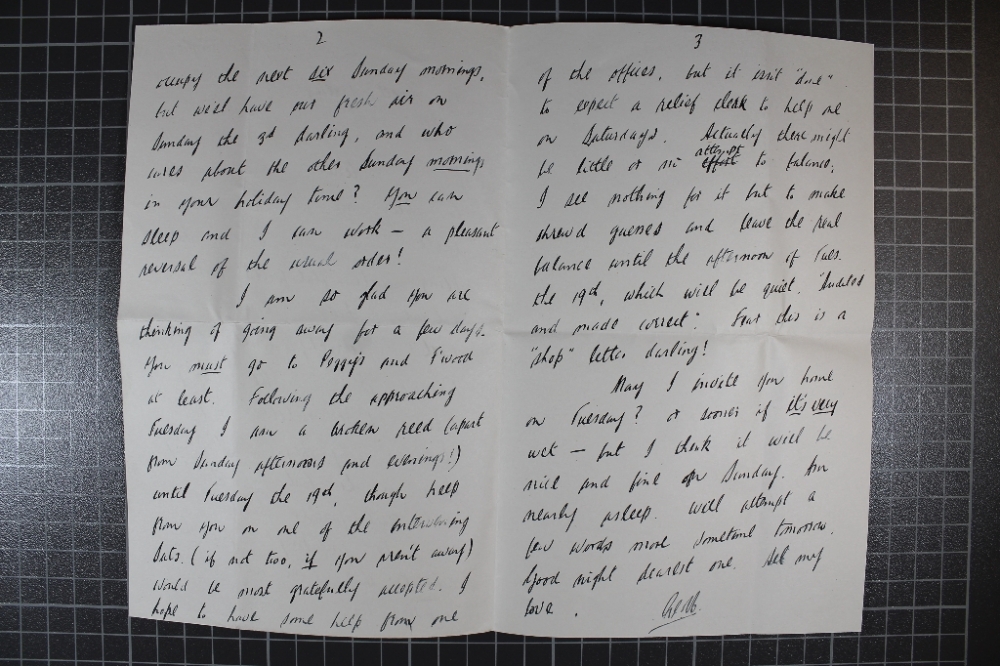 2
occupy the next six Sunday mornings,
but we'll have our fresh air on
Sunday the 3d darling, and who
cares about the other Sunday mornings
in your holiday time? You can
sleep and I can work — a pleasant
reversal of the usual order!
I am so glad you are
thinking of going away for a few days.
You must go to Peggy's and F'wood
at least. Following the approaching
Tuesday I am a broken reed (apart
from Sunday afternoons and evenings!)
until Tuesday the 19th, though help
from you on one of the intervening
Sats. (if not two, if you aren't away)
would be most gratefully accepted. I
hope to have some help from one
3
of the offices, but it isn't "done"
to expect a relief clerk to help me
on Saturdays. Actually there might
be little or no attempt to balance;
I see nothing for it but to make
shrewd guesses and leave the real
balance until the afternoon of Tues.
the 19th, which will be quiet. "Audited
and made correct". But this is a
"shop" letter darling!
May I invite you home
on Tuesday? or sooner if it's very
wet — but I think it will be
nice and fine on Sunday. Am
nearly asleep. Will attempt a
few words more sometime tomorrow.
Good night dearest one. All my
love.